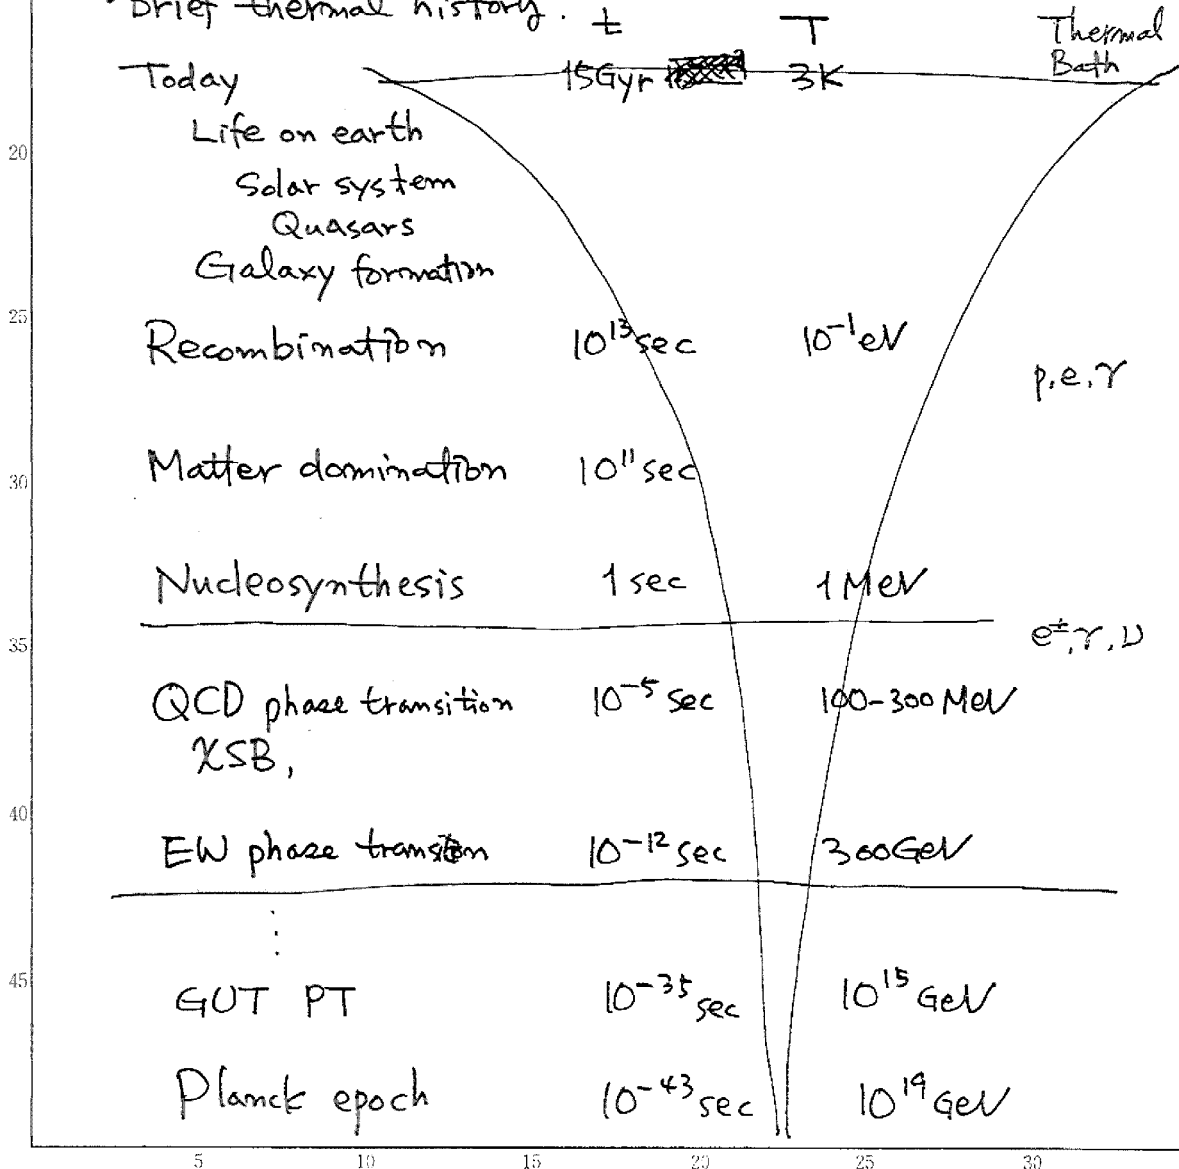 Brief thermal history. t T Thermal Bath
Today 15Gyr 3K
Life on earth
Solar system
Quasars
Galaxy formation
Recombination 10¹³sec 10⁻¹eV
p, e, γ
Matter domination 10¹¹sec
Nucleosynthesis 1 sec 1 MeV
e±, γ, ν
QCD phase transition 10⁻⁵ sec 100-300 MeV
χSB,
EW phase transition 10⁻¹² sec 300GeV
⋮
GUT PT 10⁻³⁵ sec 10¹⁵ GeV
Planck epoch 10⁻⁴³ sec 10¹⁹ GeV
20
25
30
35
40
45
5 10 15 20 25 30